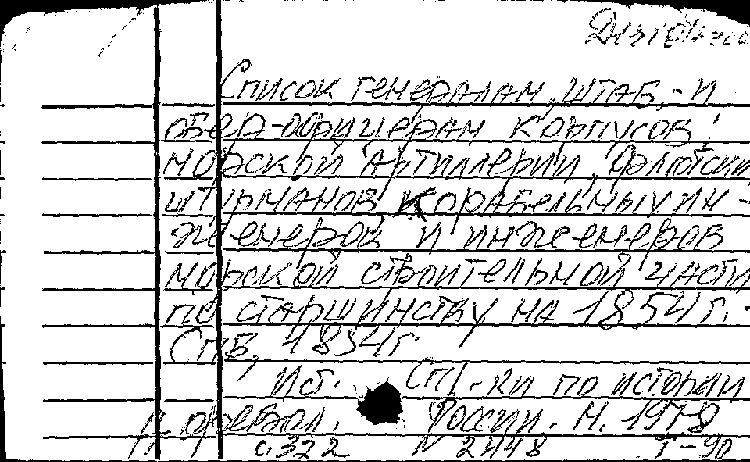 Список генералам, штаб- и
обер-офицерам корпусов:
морской артиллерии, флотских
штурманов, корабельных ин-
женеров и инженеров
морской строительной части
по старшинству на 1854 г. -
Спб, 1854 г.
Ист. Сп[-ки по истории
р. ореврол. России. М. 1978
с. 322 N 2448 Т-90